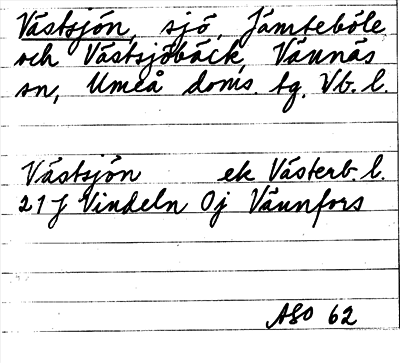 Västsjön, sjö, Jämteböle
och Västsjöbäck, Vännäs
sn, Umeå doms. tg. Vb. l.
Västsjön ek Västerb. l.
21J Vindeln 0j Vännfors
ASO 62